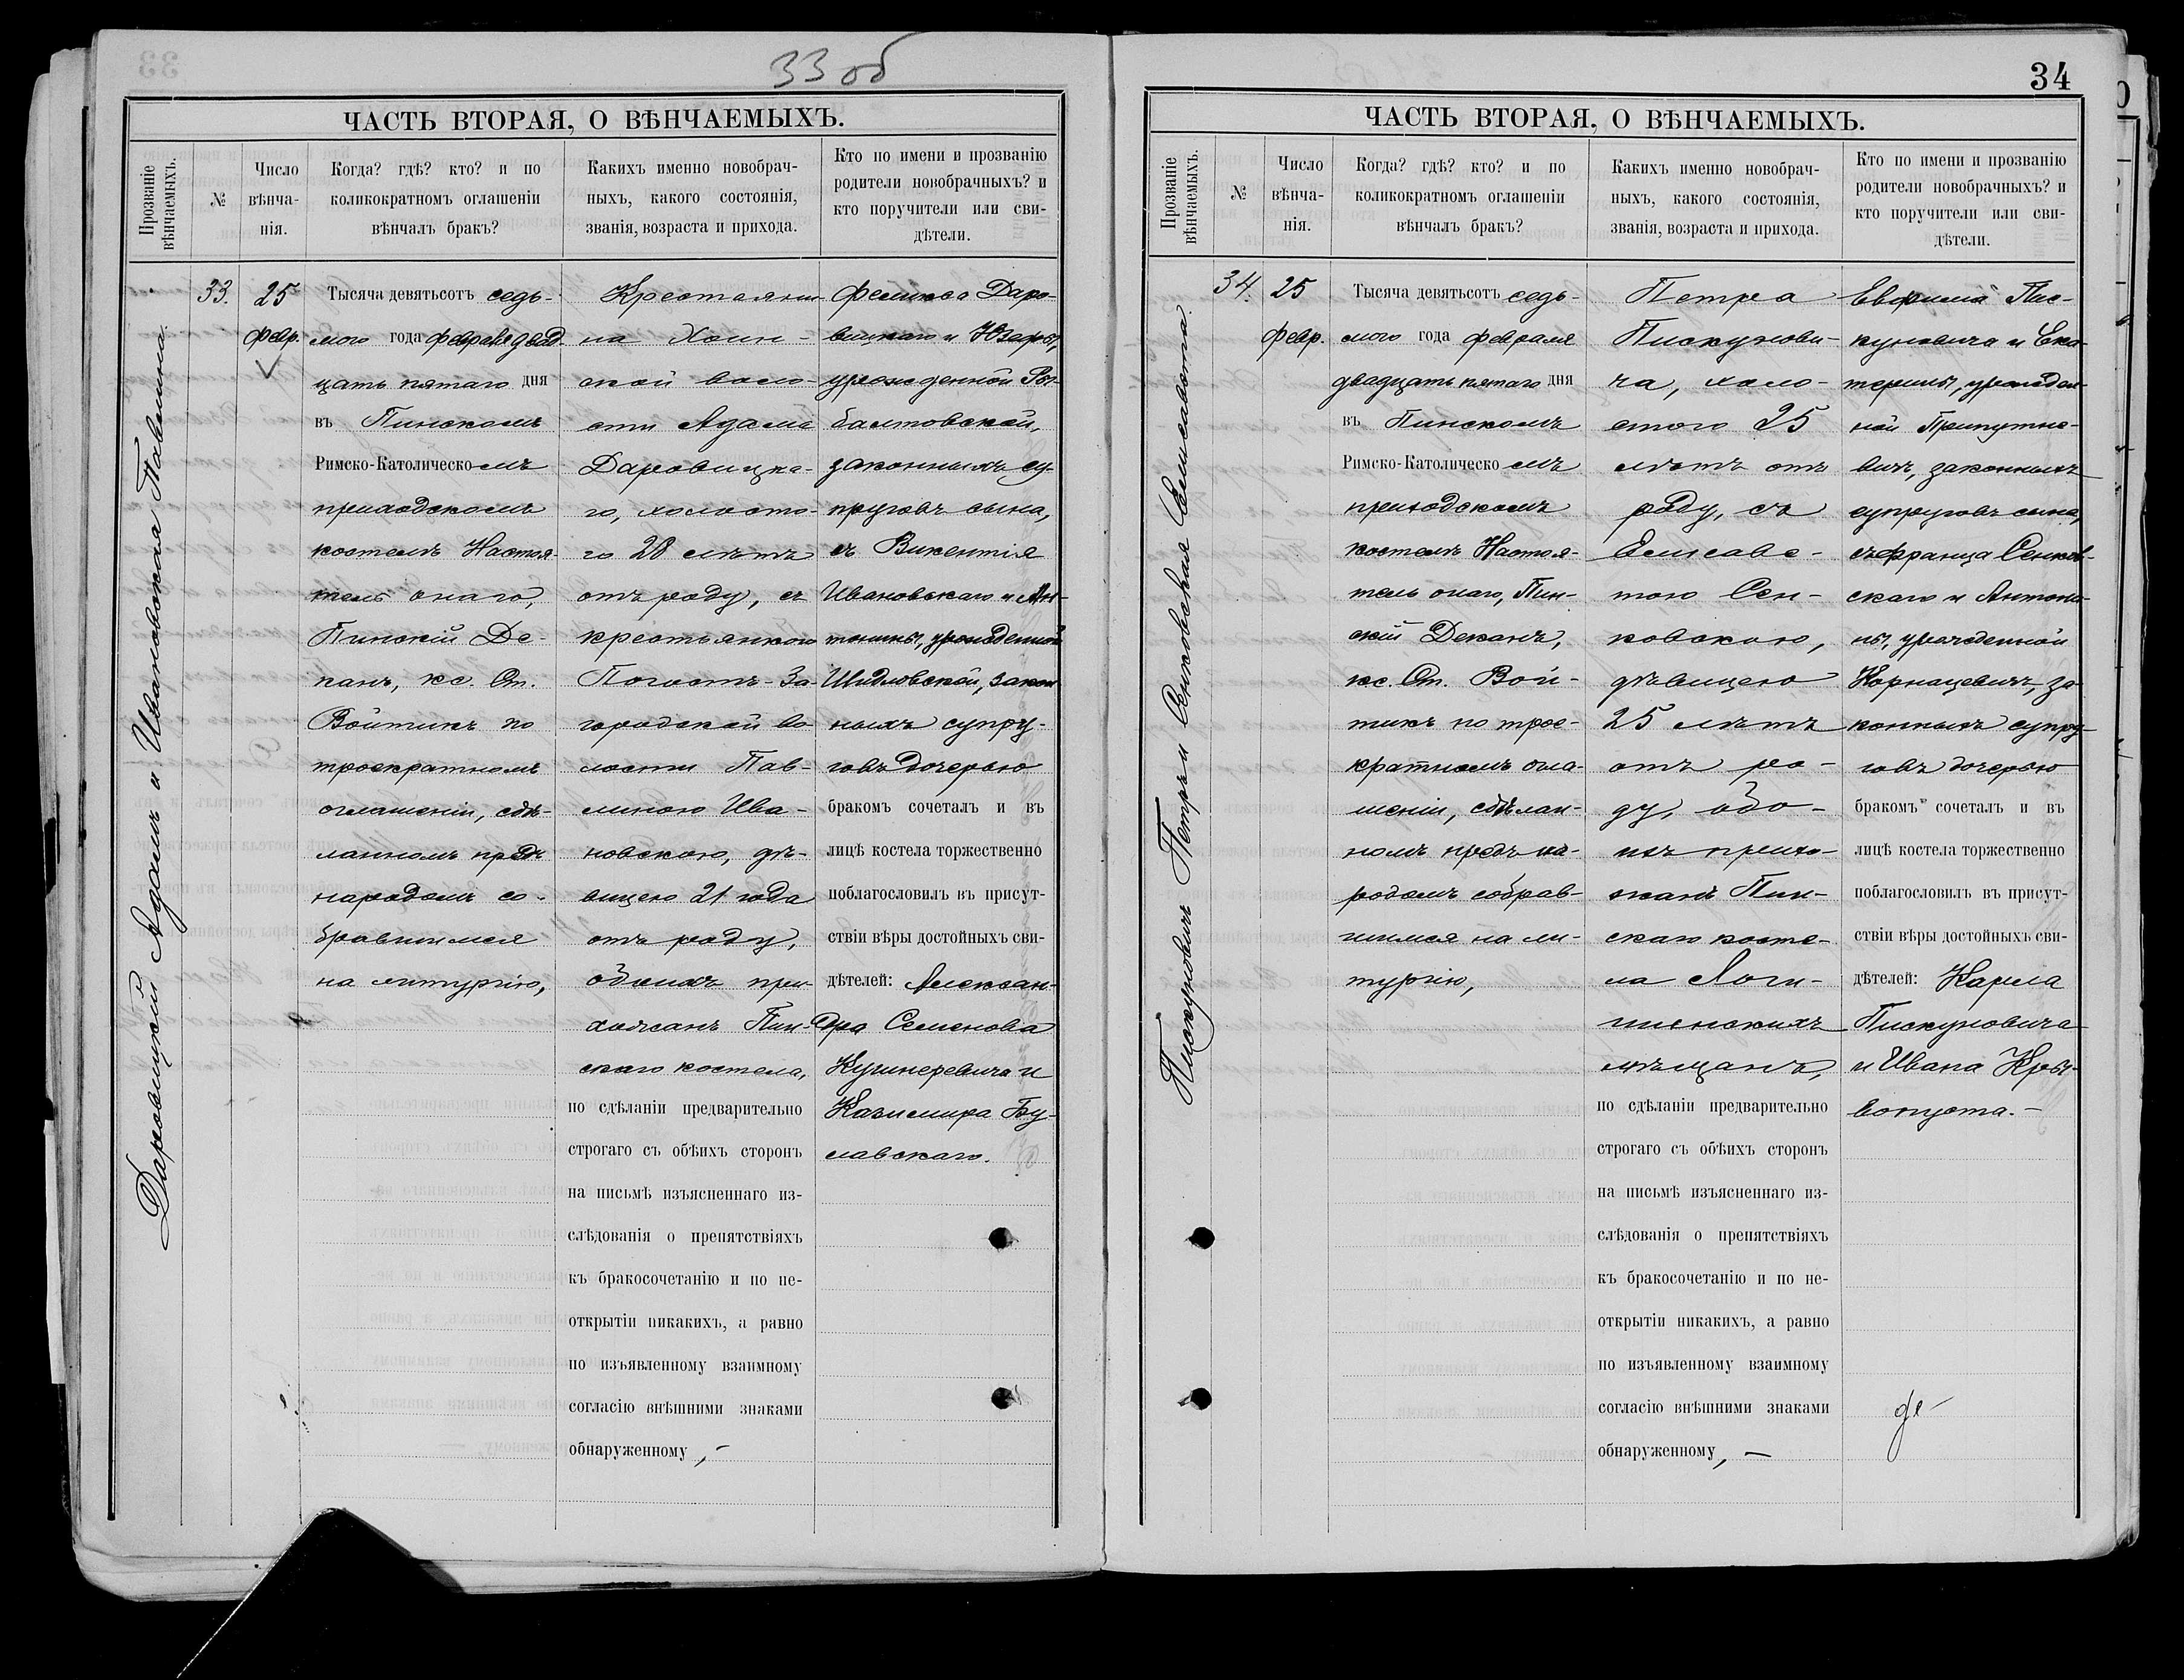 33 об
ЧАСТЬ ВТОРАЯ, О ВѢНЧАЕМЫХЪ.
Прозваніе вѣнчаемыхъ.
№
Число вѣнча-
нія.
Когда? гдѣ? кто? и по
коликократномъ оглашеніи
вѣнчалъ бракъ?
Какихъ именно новобрач-
ныхъ, какого состоянія,
званія, возраста и прихода.
Кто по имени и прозванію
родители новобрачныхъ? и
кто поручители или сви-
дѣтели.
Даровицкій Адамъ и Ивановская Павелина.
33.
25
февр.
Тысяча девятьсотъ седь-
мого года февраля двад-
цать пятаго дня
въ Пинскомъ
Римско-Католическомъ
приходскомъ
костелѣ Настоя-
тель онаго,
Пинскій Де-
канъ, кс. Ст.
Войтикъ по
троекратномъ
оглашеніи, сдѣ-
ланномъ предъ
народомъ со-
бравшимся
на литургію,
Крестьяни-
на Хоин-
ской воло-
сти Адама
Даровицка-
го, холосто-
го 28 лѣтъ
отъ роду, съ
крестьянкою
Погостъ-За-
городской во-
лости Пав-
линою Ива-
новскою, дѣ-
вицею 21 года
отъ роду,
обоихъ при-
хожанъ Пин-
скаго костела,
по сдѣланіи предварительно
строгаго съ обѣихъ сторонъ
на письмѣ изъясненнаго из-
слѣдованія о препятствіяхъ
къ бракосочетанію и по не-
открытіи никакихъ, а равно
по изъявленному взаимному
согласію внѣшними знаками
обнаруженному, –
Феликса Даро-
вицкаго и Юзефы,
урожденной
законныхъ су-
пруговъ сына,
съ Викентія
Ивановскаго и Ан-
тонины, урожденной
Шидловской, закон-
ныхъ супру-
говъ дочерью
бракомъ сочеталъ и въ
лицѣ костела торжественно
поблагословилъ въ присут-
ствіи вѣры достойныхъ сви-
дѣтелей: Алексан-
дра Семенова
Кушнеревича и
Казимира Бу-
лавскаго.
34
ЧАСТЬ ВТОРАЯ, О ВѢНЧАЕМЫХЪ.
Прозваніе вѣнчаемыхъ.
№
Число вѣнча-
нія.
Когда? гдѣ? кто? и по
коликократномъ оглашеніи
вѣнчалъ бракъ?
Какихъ именно новобрач-
ныхъ, какого состоянія,
званія, возраста и прихода.
Кто по имени и прозванію
родители новобрачныхъ? и
кто поручители или сви-
дѣтели.
Пискуновичъ Петръ и Сенковская Елисавета.
34.
25
февр.
Тысяча девятьсотъ седь-
мого года февраля
двадцать пятаго дня
въ Пинскомъ
Римско-Католическомъ
приходскомъ
костелѣ Настоя-
тель онаго, Пин-
скій Деканъ,
кс. Ст. Вой-
тикъ по трое-
кратномъ огла-
шеніи, сдѣлан-
номъ предъ на-
родомъ собрав-
шимся на ли-
тургію,
Петра
Пискунови-
ча, холо-
стого 25
лѣтъ отъ
роду, съ
Елисаве-
тою Сен-
ковскою,
дѣвицею
25 лѣтъ
отъ ро-
ду, обо-
ихъ прихо-
жанъ Пин-
скаго косте-
ла Логи-
шинскихъ
мѣщанъ,
по сдѣланіи предварительно
строгаго съ обѣихъ сторонъ
на письмѣ изъясненнаго из-
слѣдованія о препятствіяхъ
къ бракосочетанію и по не-
открытіи никакихъ, а равно
по изъявленному взаимному
согласію внѣшними знаками
обнаруженному, –
Евфимія Пис-
куновича и Ека-
терины, урожден-
ной Припутне-
вичъ, законныхъ
супруговъ сына,
съ Франца Сенков-
скаго и Антони-
ны, урожденной
Корнацевичъ, за-
конныхъ супру-
говъ дочерью
бракомъ сочеталъ и въ
лицѣ костела торжественно
поблагословилъ въ присут-
ствіи вѣры достойныхъ сви-
дѣтелей: Карла
Пискуновича
и Ивана